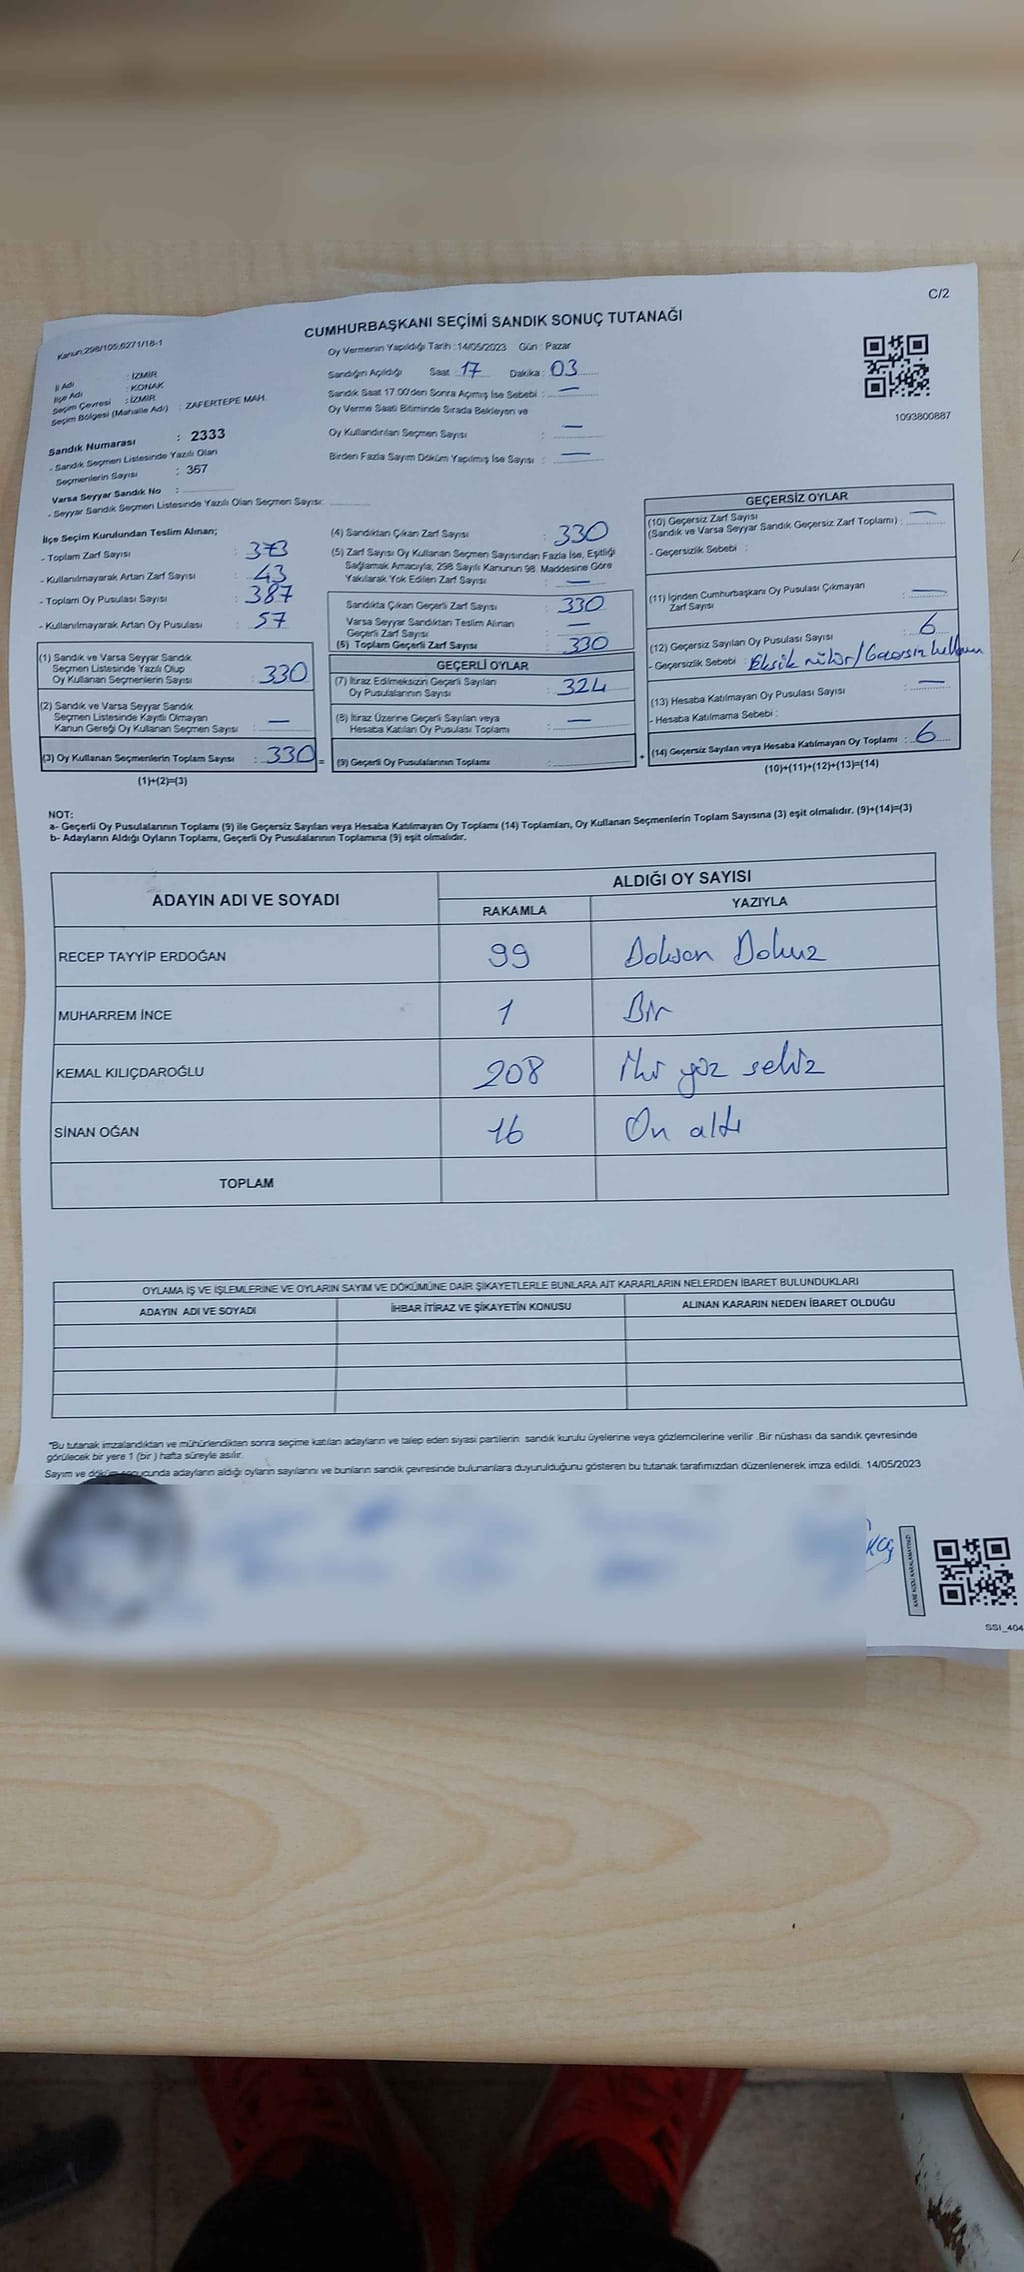 C/2
CUMHURBAŞKANI SEÇİMİ SANDIK SONUÇ TUTANAĞI
Kanun:298/105,6271/18-1
Oy Vermenin Yapıldığı Tarih :14/05/2023 Gün : Pazar
İl Adı : İZMİR
İlçe Adı : KONAK
Seçim Çevresi : İZMİR
Seçim Bölgesi (Mahalle Adı) : ZAFERTEPE MAH.
Sandık Numarası : 2333
- Sandık Seçmen Listesinde Yazılı Olan
Seçmenlerin Sayısı : 367
Varsa Seyyar Sandık No :
- Seyyar Sandık Seçmen Listesinde Yazılı Olan Seçmen Sayısı:
Sandığın Açıldığı Saat : 17 Dakika : 03
Sandık Saat 17.00'den Sonra Açımış İse Sebebi : —
Oy Verme Saati Bitiminde Sırada Bekleyen ve
Oy Kullandırılan Seçmen Sayısı : —
Birden Fazla Sayım Döküm Yapılmış İse Sayısı : —
1093800887
İlçe Seçim Kurulundan Teslim Alınan;
- Toplam Zarf Sayısı : 373
- Kullanılmayarak Artan Zarf Sayısı : 43
- Toplam Oy Pusulası Sayısı : 387
- Kullanılmayarak Artan Oy Pusulası : 57
(1) Sandık ve Varsa Seyyar Sandık
Seçmen Listesinde Yazılı Olup
Oy Kullanan Seçmenlerin Sayısı : 330
(2) Sandık ve Varsa Seyyar Sandık
Seçmen Listesinde Kayıtlı Olmayan
Kanun Gereği Oy Kullanan Seçmen Sayısı : —
(3) Oy Kullanan Seçmenlerin Toplam Sayısı : 330 =
(1)+(2)=(3)
(4) Sandıktan Çıkan Zarf Sayısı : 330
(5) Zarf Sayısı Oy Kullanan Seçmen Sayısından Fazla İse, Eşitliği
Sağlamak Amacıyla; 298 Sayılı Kanunun 98. Maddesine Göre
Yakılarak Yok Edilen Zarf Sayısı : —
Sandıkta Çıkan Geçerli Zarf Sayısı : 330
Varsa Seyyar Sandıktan Teslim Alınan
Geçerli Zarf Sayısı : —
(6) Toplam Geçerli Zarf Sayısı : 330
GEÇERLİ OYLAR
(7) İtiraz Edilmeksizin Geçerli Sayılan
Oy Pusulalarının Sayısı : 324
(8) İtiraz Üzerine Geçerli Sayılan veya
Hesaba Katılan Oy Pusulası Toplamı : —
(9) Geçerli Oy Pusulalarının Toplamı : +
GEÇERSİZ OYLAR
(10) Geçersiz Zarf Sayısı
(Sandık ve Varsa Seyyar Sandık Geçersiz Zarf Toplamı) : —
- Geçersizlik Sebebi :
(11) İçinden Cumhurbaşkanı Oy Pusulası Çıkmayan
Zarf Sayısı : —
(12) Geçersiz Sayılan Oy Pusulası Sayısı : 6
- Geçersizlik Sebebi : Eksik mühür/Geçersiz kullanım
(13) Hesaba Katılmayan Oy Pusulası Sayısı : —
- Hesaba Katılmama Sebebi :
(14) Geçersiz Sayılan veya Hesaba Katılmayan Oy Toplamı : 6
(10)+(11)+(12)+(13)=(14)
NOT:
a- Geçerli Oy Pusulalarının Toplamı (9) ile Geçersiz Sayılan veya Hesaba Katılmayan Oy Toplamı (14) Toplamları, Oy Kullanan Seçmenlerin Toplam Sayısına (3) eşit olmalıdır. (9)+(14)=(3)
b- Adayların Aldığı Oyların Toplamı, Geçerli Oy Pusulalarının Toplamına (9) eşit olmalıdır.
ADAYIN ADI VE SOYADI ALDIĞI OY SAYISI
RAKAMLA YAZIYLA
RECEP TAYYİP ERDOĞAN 99 Doksan Dokuz
MUHARREM İNCE 1 Bir
KEMAL KILIÇDAROĞLU 208 iki yüz sekiz
SİNAN OĞAN 16 On altı
TOPLAM
OYLAMA İŞ VE İŞLEMLERİNE VE OYLARIN SAYIM VE DÖKÜMÜNE DAİR ŞİKAYETLERLE BUNLARA AİT KARARLARIN NELERDEN İBARET BULUNDUKLARI
ADAYIN ADI VE SOYADI İHBAR İTİRAZ VE ŞİKAYETİN KONUSU ALINAN KARARIN NEDEN İBARET OLDUĞU
*Bu tutanak imzalandıktan ve mühürlendikten sonra seçime katılan adayların ve talep eden siyasi partilerin sandık kurulu üyelerine veya gözlemcilerine verilir. Bir nüshası da sandık çevresinde
görülecek bir yere 1 (bir ) hafta süreyle asılır.
Sayım ve döküm sonucunda adayların aldığı oyların sayılarını ve bunların sandık çevresinde bulunanlara duyurulduğunu gösteren bu tutanak tarafımızdan düzenlenerek imza edildi. 14/05/2023
KARE KODU KARALAMAYINIZ!
SSI_404